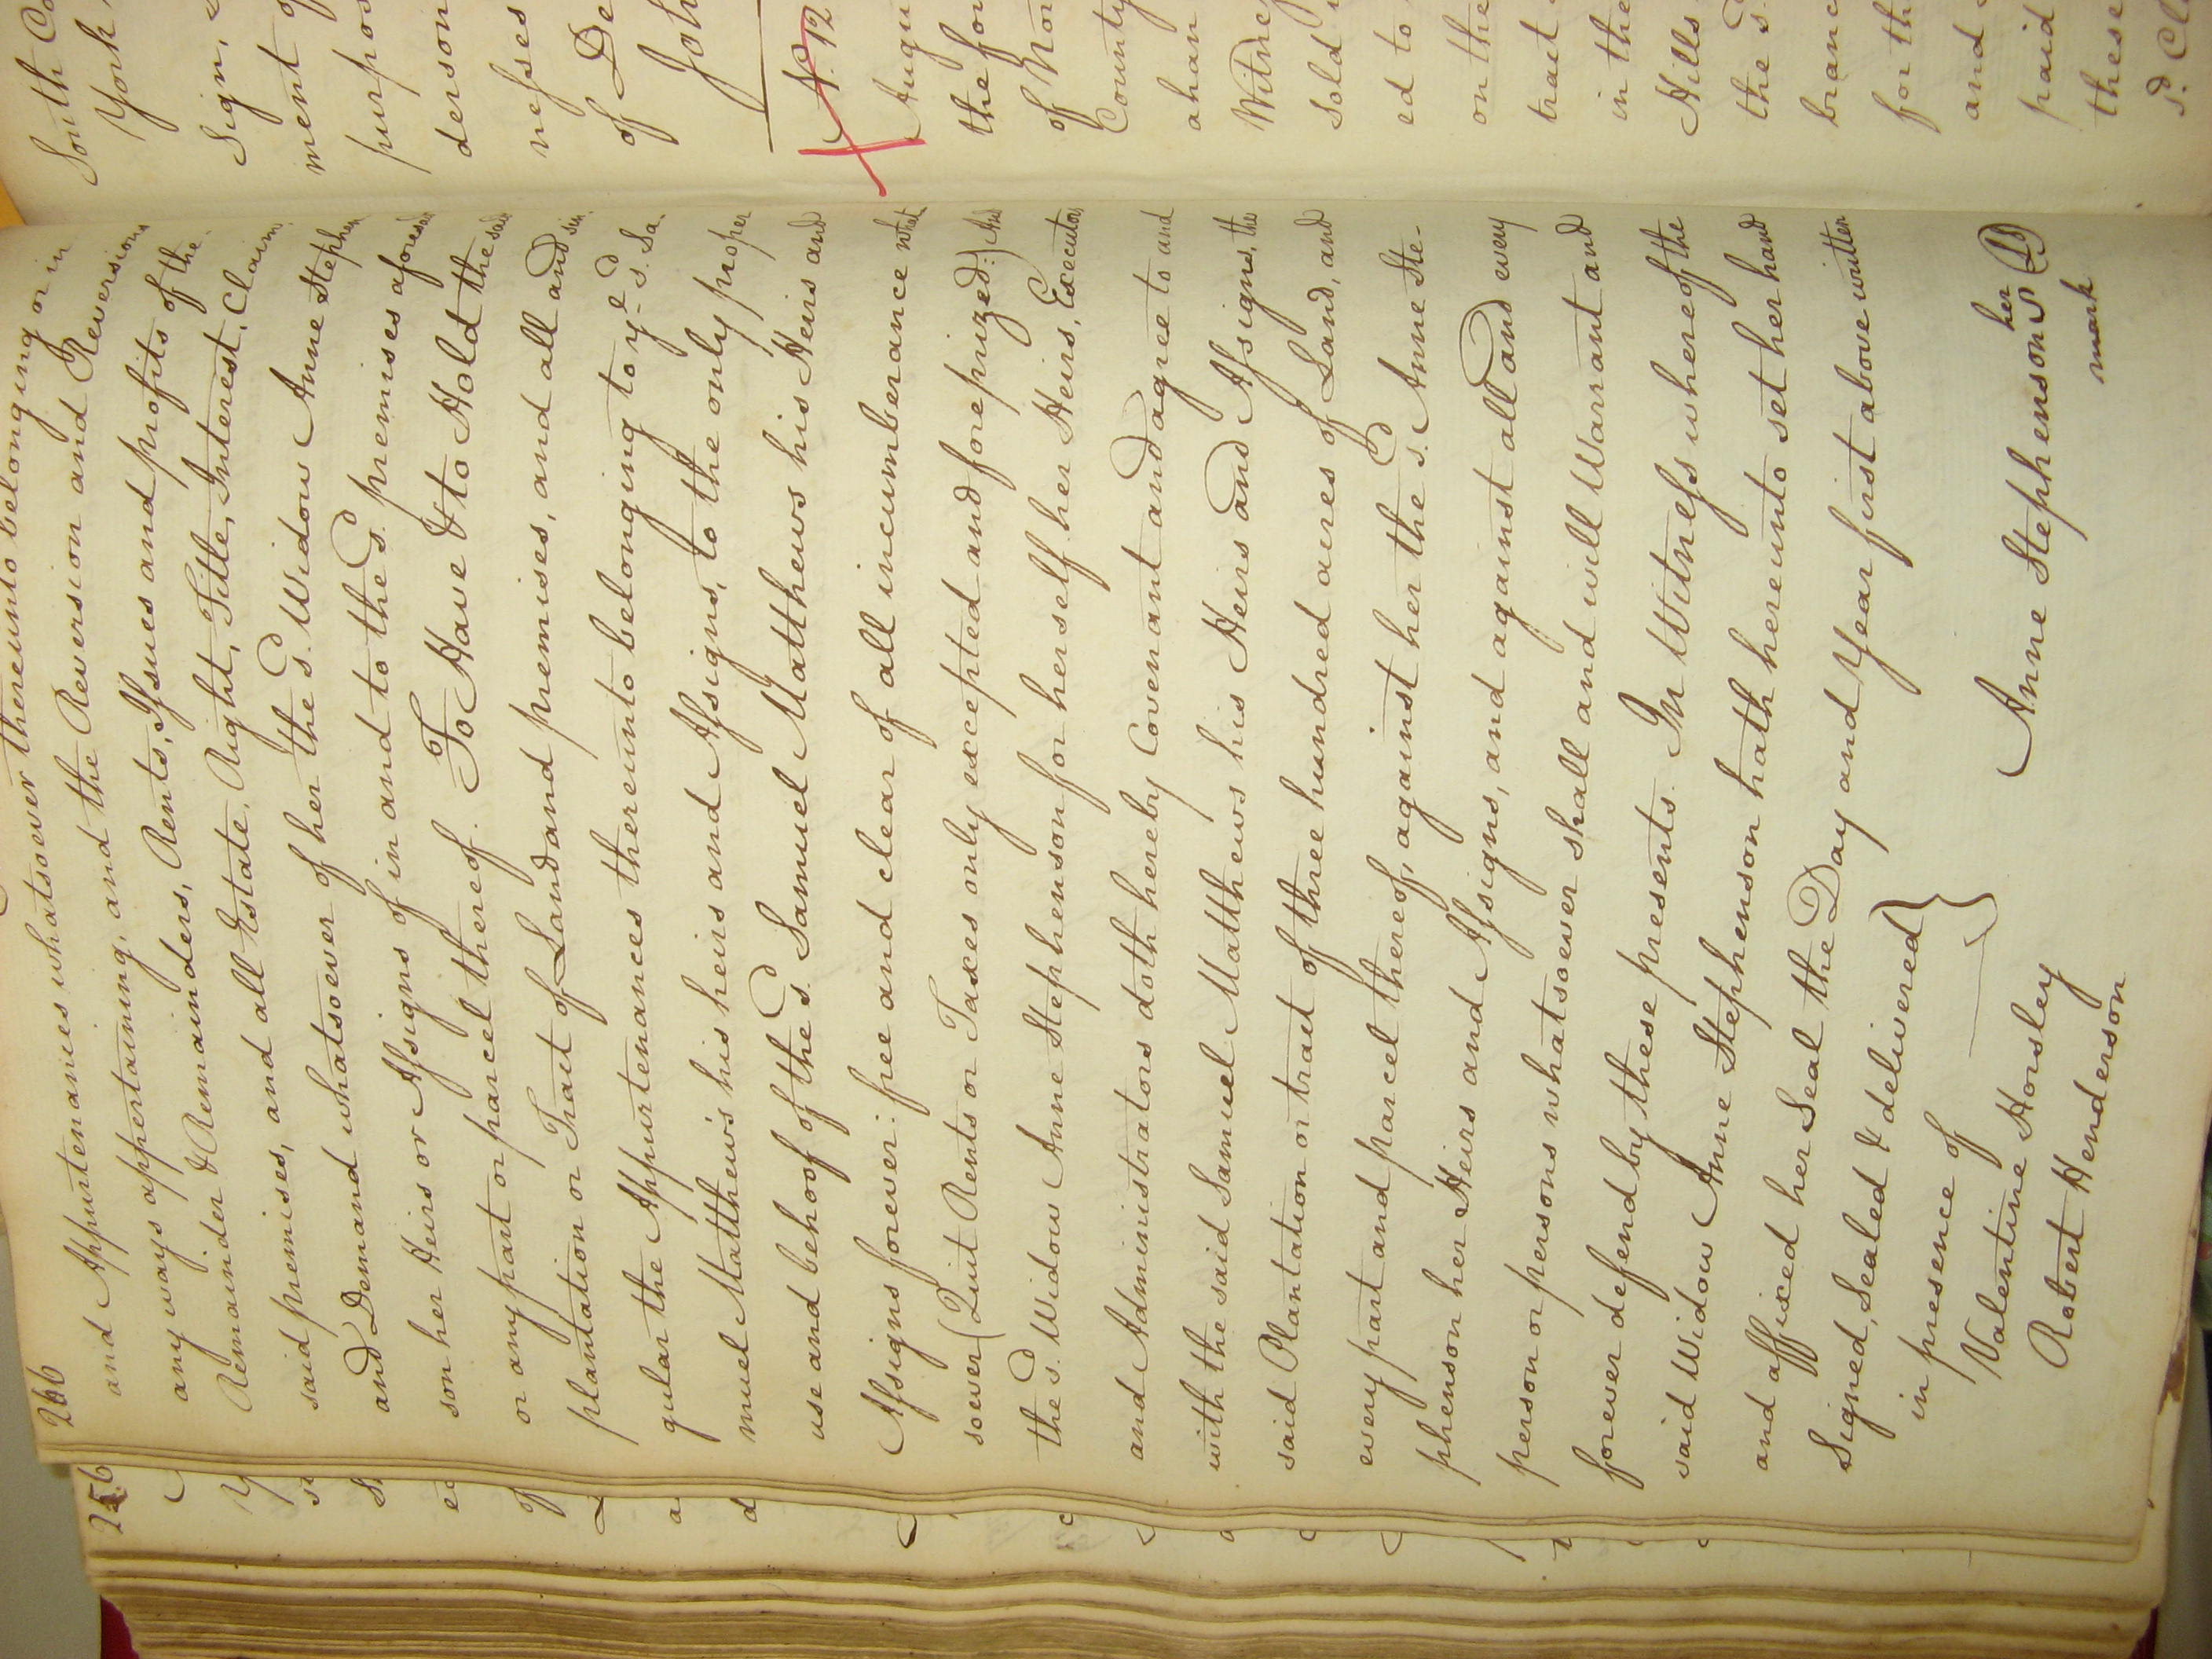 266
and Appurtenances whatsoever thereunto belonging or in
any ways appertaining, and the Reversion and Reversions
Remainder & Remainders, Rents, Issues and profits of the
said premises, and all Estate, Right, Title, Interest, Claim
and Demand whatsoever of her the sd. Widow Anne Stephen
son her Heirs or Assigns of in and to the sd. premises aforesaid
or any part or parcel thereof. To Have & to Hold the said
plantation or Tract of Land and premises, and all and sin-
gular the Appurtenances thereunto belonging to ye. sd. Sa-
muel Matthews his heirs and Assigns, to the only proper
use and behoof of the sd. Samuel Matthews his Heirs and
Assigns forever: free and clear of all incumberance what
soever (Quit Rents or Taxes only excepted and foreprized:) And
the sd. Widow Anne Stephenson for herself her Heirs, Executors
and Administrators doth hereby Covenant and agree to and
with the said Samuel Matthews his Heirs and Assigns, the
said Plantation or tract of three hundred acres of Land, and
every part and parcel thereof, against her the sd. Anne Ste-
phenson her Heirs and Assigns, and against all and every
person or persons whatsoever shall and will Warrant and
forever defend by these presents. In Witness whereof the
said Widow Anne Stephenson hath hereunto set her hand
and affixed her Seal the Day and Year first above written
Signed, Sealed & delivered }
in presence of
Valentine Horsley
Robert Henderson
her
Anne Stephenson S
mark
256
South Ca
York
Sign,
ment
purpos
derson
nesses
of De
Joh
N. 12
Augu
the fou
of Nor
County
aham
Witnes
sold
ed to
on the
tract
in the
Hills
the sd.
branc
for th
and
paid
these
sd. Cl